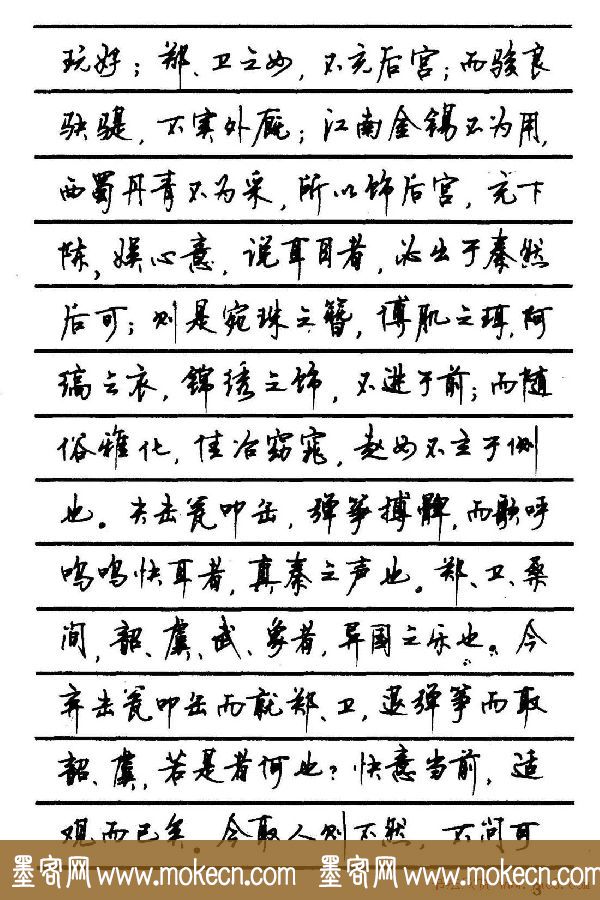 玩好；郑、卫之女，不充后宫；而骏良
駃騠，不实外厩；江南金锡不为用，
西蜀丹青不为采，所以饰后宫，充下
陈，娱心意，说耳目者，必出于秦然
后可；则是宛珠之簪，傅玑之珥，阿
缟之衣，锦绣之饰，不进于前；而随
俗雅化，佳冶窈窕，赵女不立于侧
也。夫击瓮叩缶，弹筝搏髀，而歌呼
呜呜快耳者，真秦之声也。郑、卫、桑
间，韶、虞、武、象者，异国之乐也。今
弃击瓮叩缶而就郑、卫，退弹筝而取
韶、虞，若是者何也？快意当前，适
观而已矣。今取人则不然，不问可
墨客网 www.mokecn.com 墨客网 www.mokecn.com
3